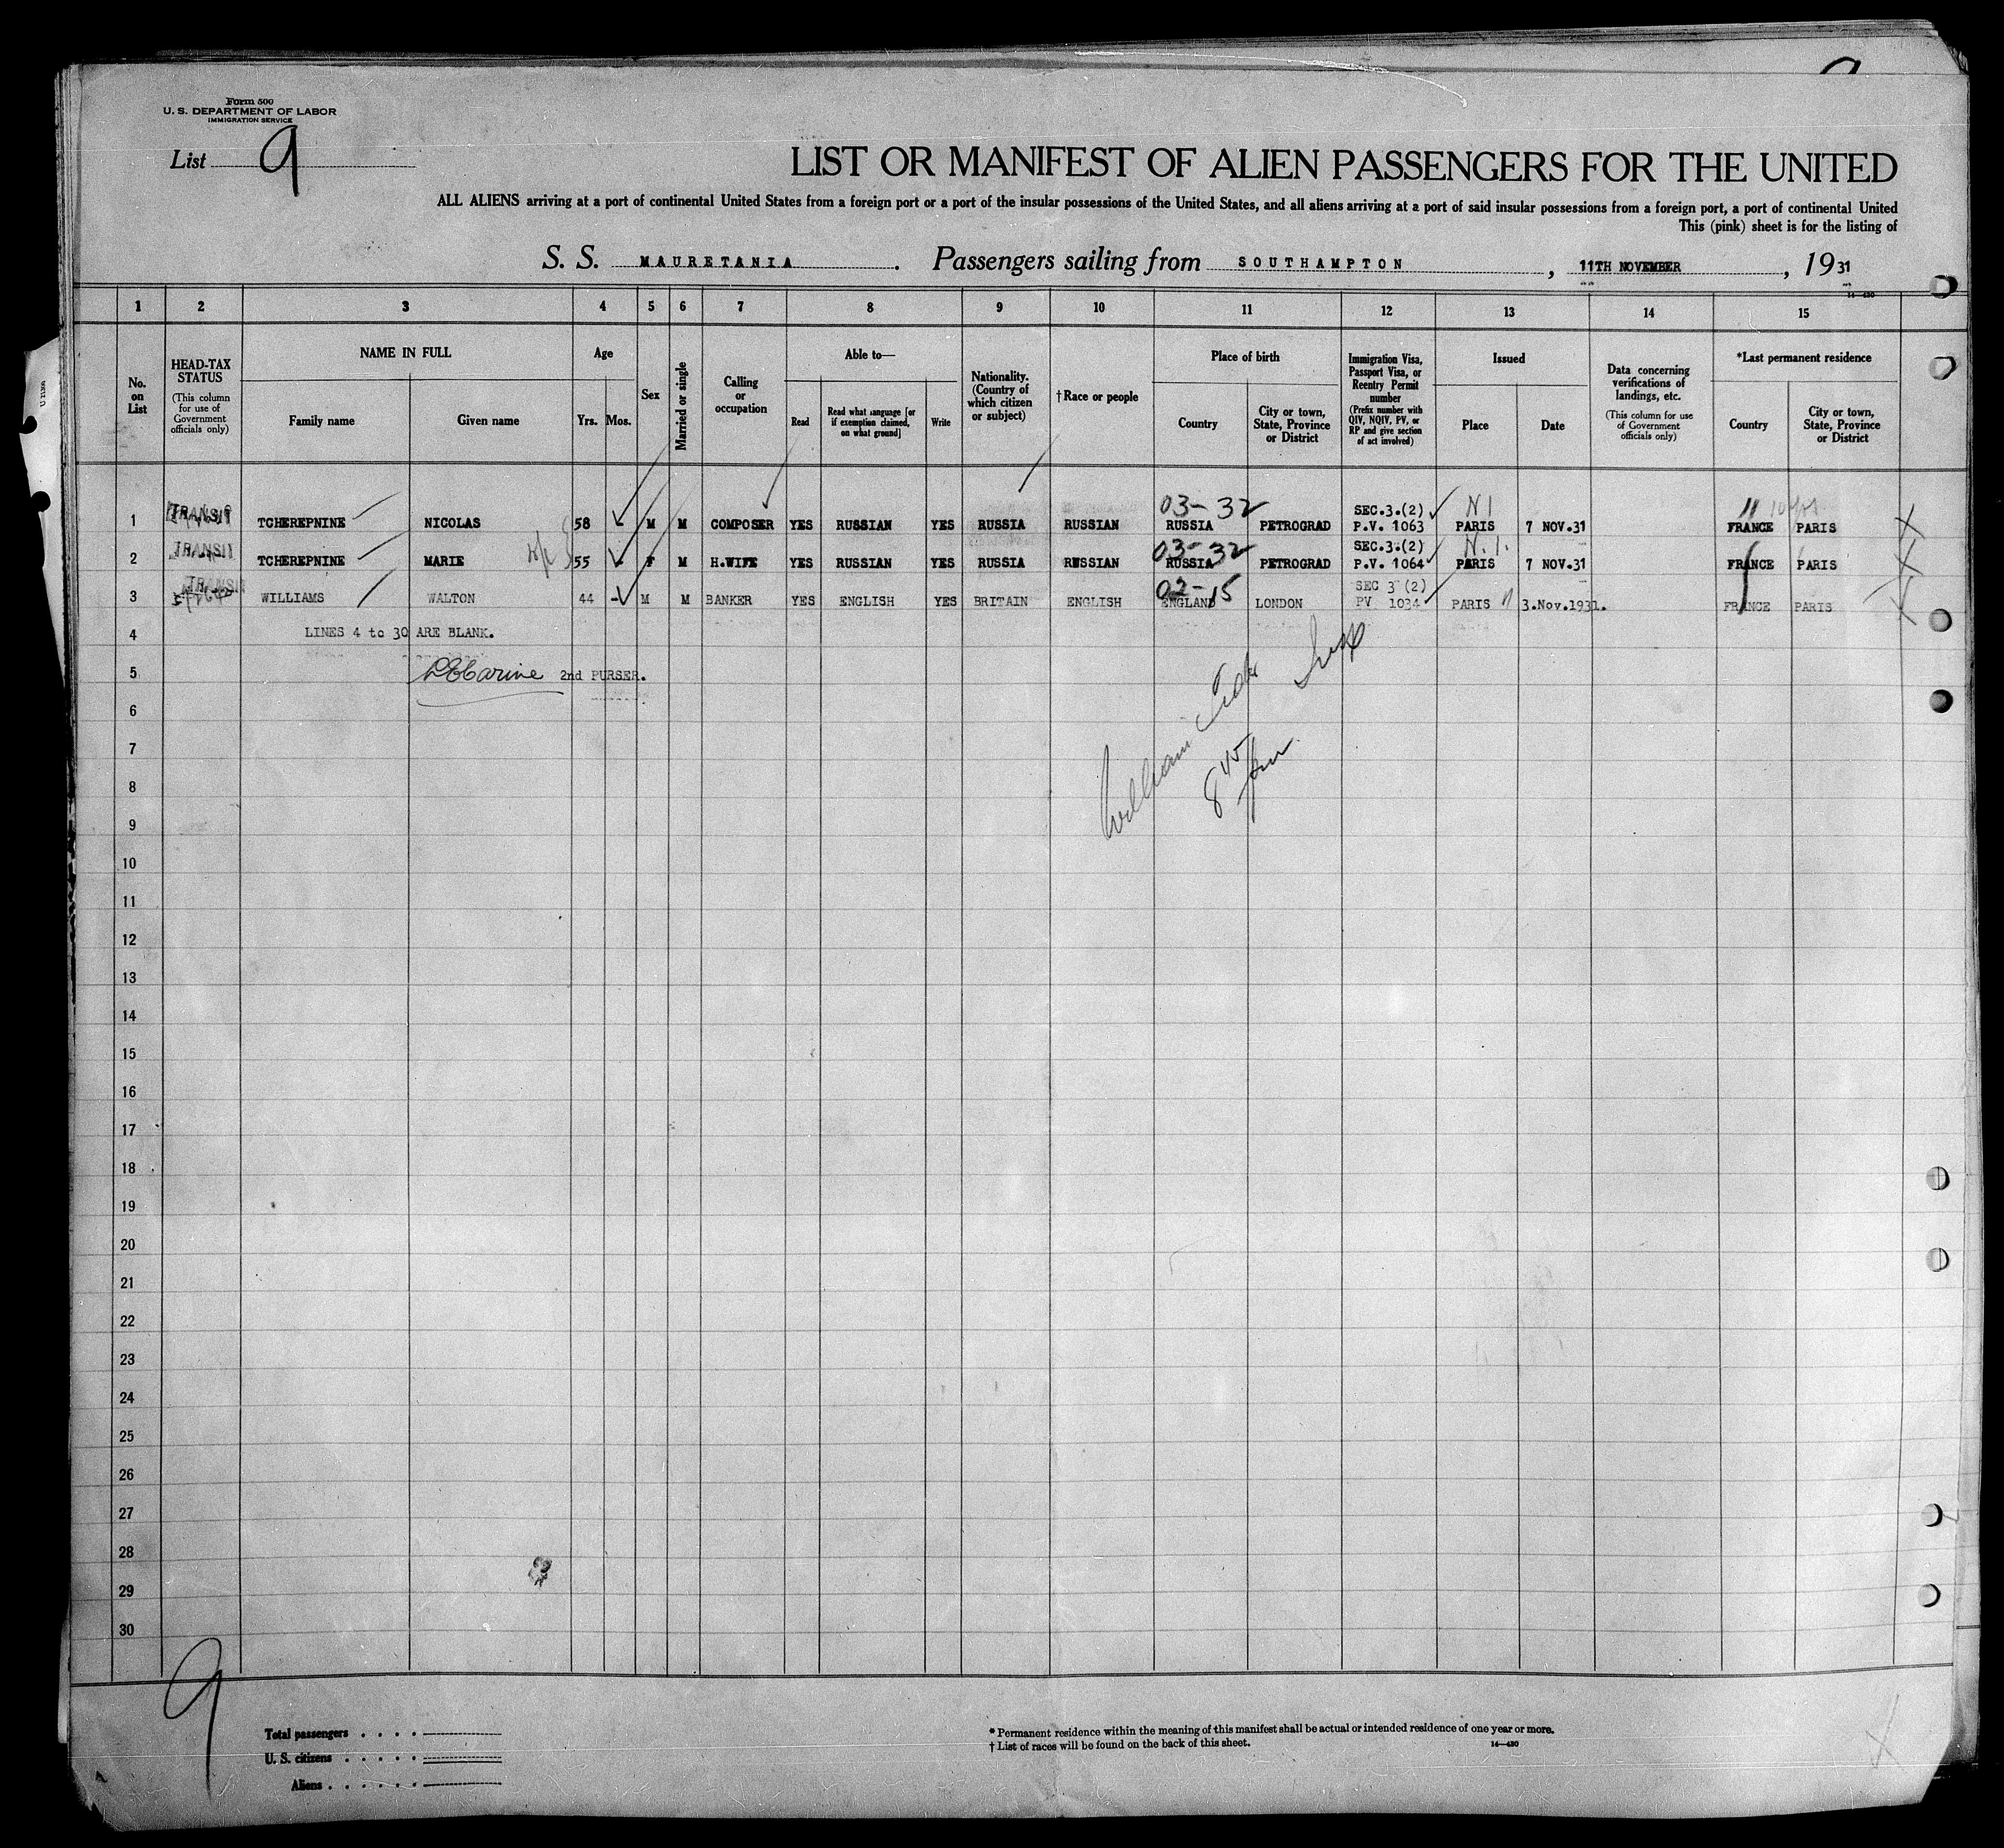 Form 500
U. S. DEPARTMENT OF LABOR
IMMIGRATION SERVICE
List 9
LIST OR MANIFEST OF ALIEN PASSENGERS FOR THE UNITED
ALL ALIENS arriving at a port of continental United States from a foreign port or a port of the insular possessions of the United States, and all aliens arriving at a port of said insular possessions from a foreign port, a port of continental United
This (pink) sheet is for the listing of
S. S. MAURETANIA . Passengers sailing from SOUTHAMPTON , 11TH NOVEMBER , 1931
14—430
1 2 3 4 5 6 7 8 9 10 11 12 13 14 15
No. on List
HEAD-TAX STATUS
(This column for use of Government officials only)
NAME IN FULL
Family name
Given name
Age
Yrs.
Mos.
Sex
Married or single
Calling or occupation
Able to—
Read
Read what language [or if exemption claimed, on what ground]
Write
Nationality. (Country of which citizen or subject)
†Race or people
Place of birth
Country
City or town, State, Province or District
Immigration Visa, Passport Visa, or Reentry Permit number
(Prefix number with QIV, NQIV, PV, or RP and give section of act involved)
Issued
Place
Date
Data concerning verifications of landings, etc.
(This column for use of Government officials only)
*Last permanent residence
Country
City or town, State, Province or District
TRANSIT 03-32 SEC.3.(2) N1
1 TCHEREPNINE NICOLAS 58 M M COMPOSER YES RUSSIAN YES RUSSIA RUSSIAN RUSSIA PETROGRAD P.V. 1063 PARIS 7 NOV.31 FRANCE PARIS
TRANSIT 03-32 SEC.3.(2) N.1.
2 TCHEREPNINE MARIE 55 F M H.WIFE YES RUSSIAN YES RUSSIA RUSSIAN RUSSIA PETROGRAD P.V. 1064 PARIS 7 NOV.31 FRANCE PARIS
TRANSIT 02-15 SEC 3 (2)
3 WILLIAMS WALTON 44 - M M BANKER YES ENGLISH YES BRITAIN ENGLISH ENGLAND LONDON PV 1034 PARIS 3.Nov.1931. FRANCE PARIS
4 LINES 4 to 30 ARE BLANK.
5 2nd PURSER.
William
8 45 pm
6
7
8
9
10
11
12
13
14
15
16
17
18
19
20
21
22
23
24
25
26
27
28
29
30
9
Total passengers . . . .
U. S. citizens . . . . .
Aliens . . . . . .
* Permanent residence within the meaning of this manifest shall be actual or intended residence of one year or more.
† List of races will be found on the back of this sheet.
14—430